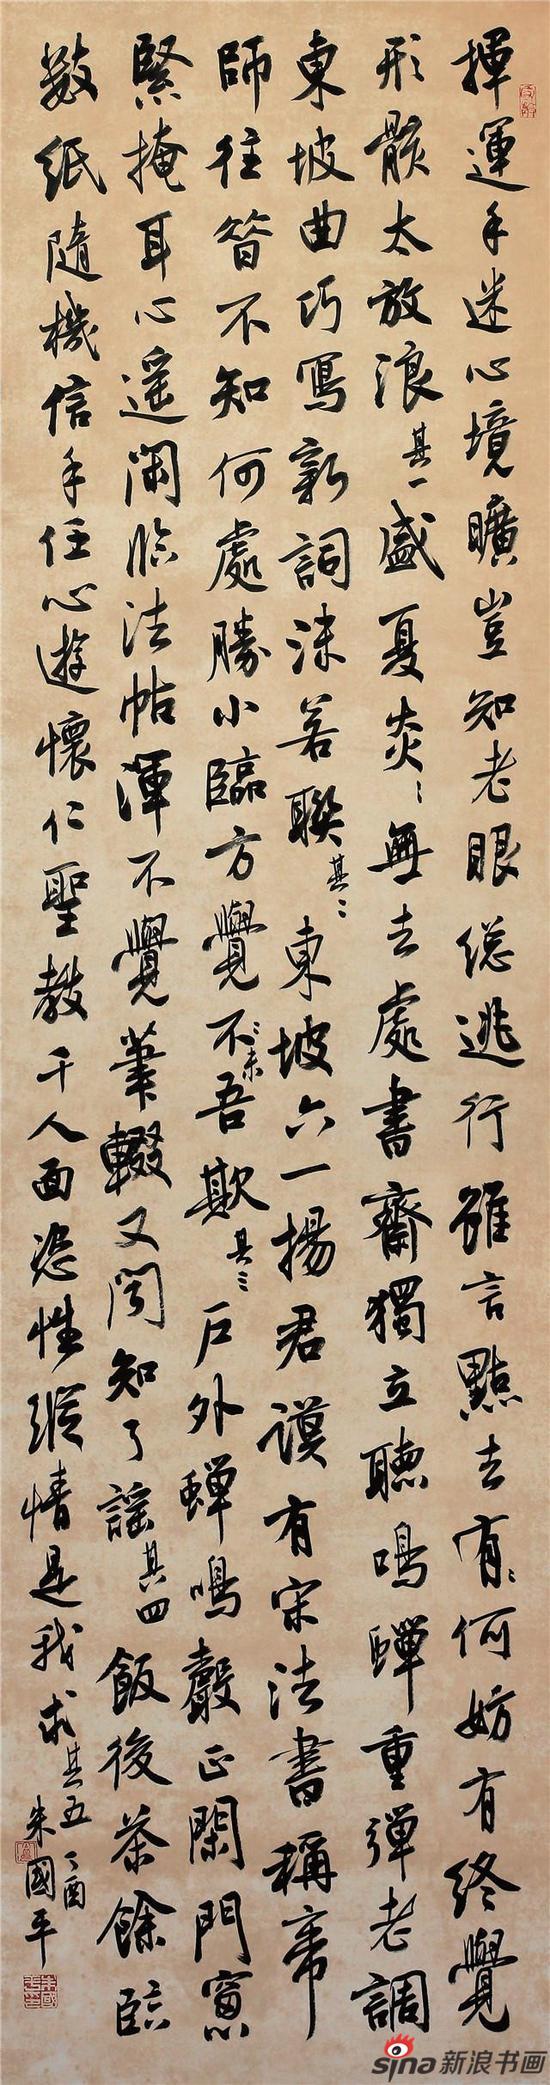 揮運手迷心境曠豈知老眼總逃行雖言點去有〻何妨有終覺
形骸太放浪其一盛夏炎〻無去處書齋獨立聽鳴蟬重彈老調
東坡曲巧寫新詞沫若聯其二東坡六一揚君謨有宋法書稱帝
師往昔不知何處勝小臨方覺不吾欺其三戶外蟬鳴聲正鬧門窗
緊掩耳心遥閑臨法帖渾不覺筆輟又聞知了謠其四飯後茶餘臨
數紙隨機信手任心遊懷仁聖教千人面恣性縱情是我求其五丁酉朱國平
sina新浪书画